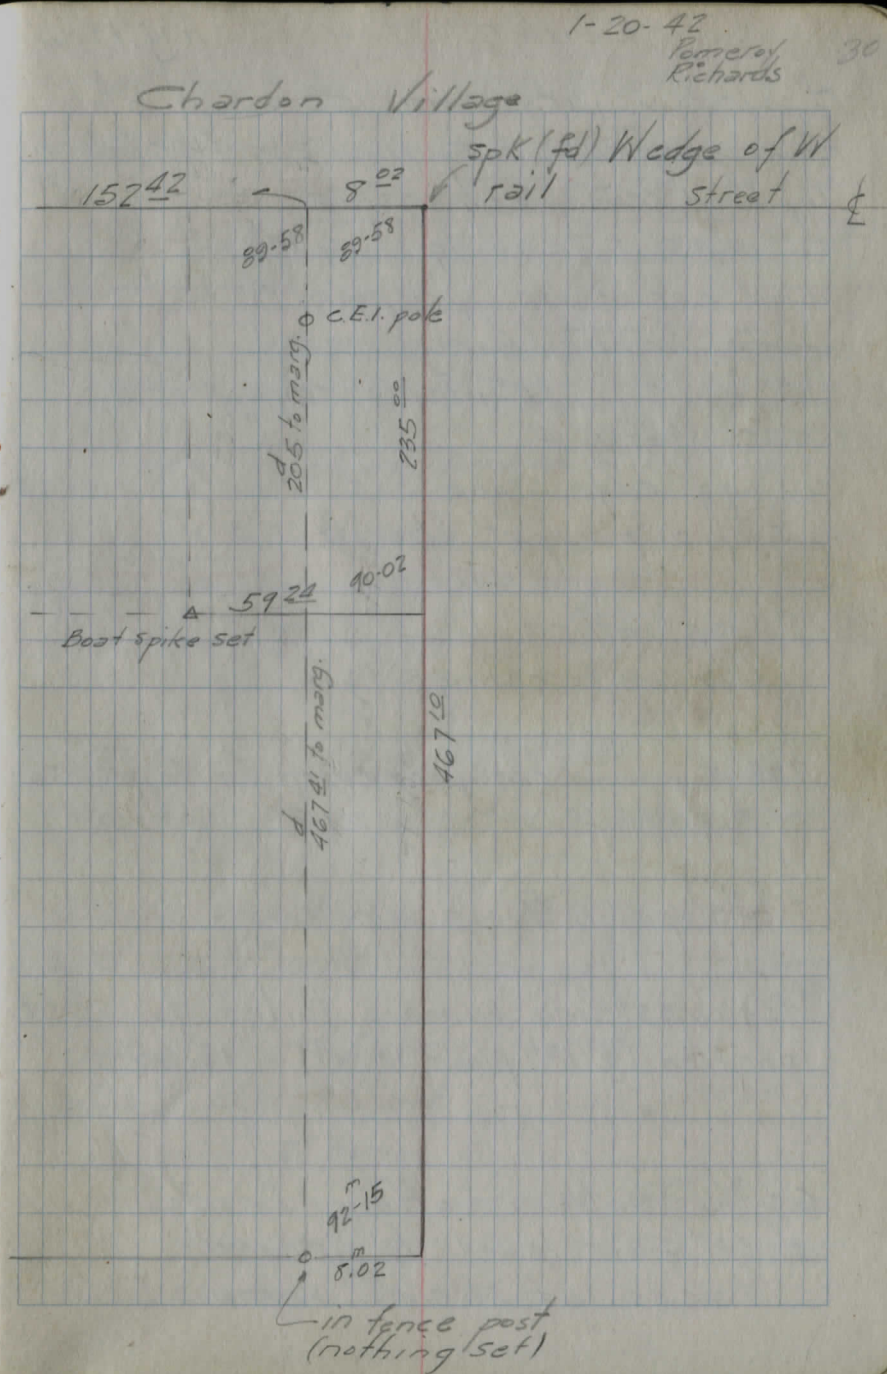 1-20-42
Pomeroy
Richards
30
Chardon Village
spk (fd) W edge of W
rail
Street
152 42
8 02
℄
89-58
89-58
C.E.I. pole
d
205 to marg.
235 00
90-02
59 24
Boat spike set
d
467 41 to marg.
467 10
m
92-15
m
8.02
in fence post
(nothing set)